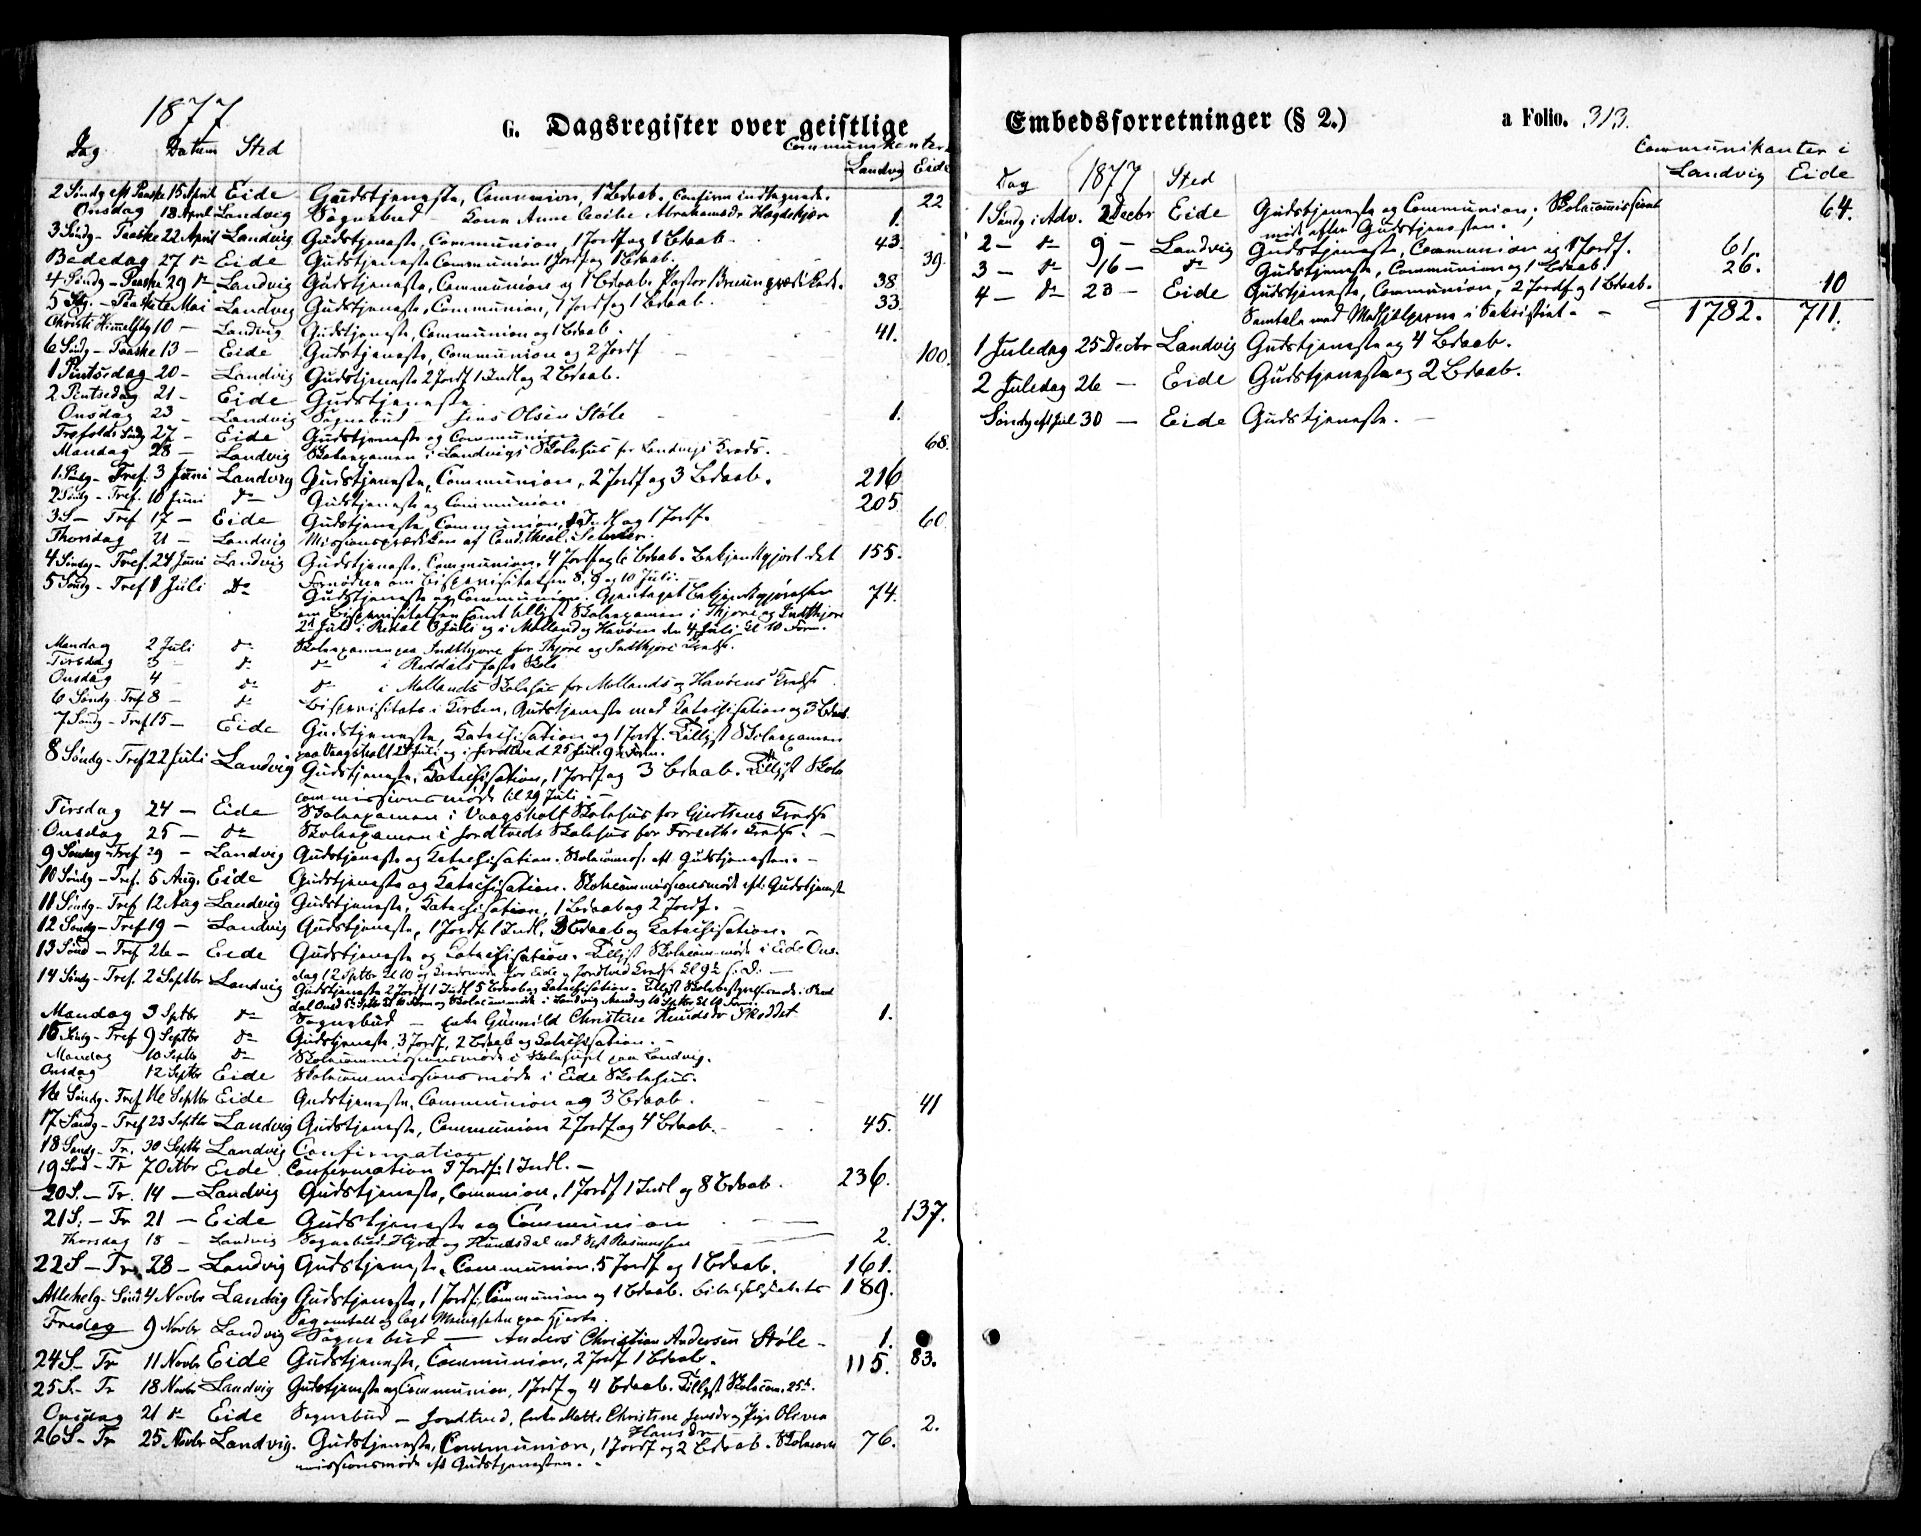 1877
G. Dagsregister over geistlige
Dag Datum Sted Communikanter
Landvig Eide
2 Søndg eft Paaske 15 April Eide Gudstjeneste, Communion, 1 Bdaab. Confirm indtegnede. 22
Onsdag 18 April Landvig Sognebud – Kone Anne Cecilie Abrahamsdr Hagdekjør 1.
3 Søndg – Paaske 22 April Landvig Gudstjeneste, Communion, 1 Jordf og 1 Bdaab. 43.
Bededag 27 do Eide Gudstjeneste Communion 1 Jordf og 1 Bdaab. 39.
4 Søndg – Paaske 29 do Landvig Gudstjeneste, Communion og 1 Bdaab. Pastor Bruun prædikede. 38
5 Sdg. – Paaske 6 Mai Landvig Gudstjeneste, Communion, 1 Jordf og 1 Bdaab. 33.
Christi Himmelfdg 10 – Landvig Gudstjeneste, Communion og 1 Bdaab. 41.
6 Søndg – Paaske 13 – Eide Gudstjeneste, Communion og 2 Jordf – 100.
1 Pintsedag 20 – Landvig Gudstjeneste 2 Jordf 1 Indl og 2 Bdaab.
2 Pintsedag 21 – Eide Gudstjeneste.
Onsdag 23 – Landvig Sognebud – Jens Olsen Støle – 1.
Trefoldg Søndg 27 – Eide Gudstjeneste og Communion 68.
Mandag 28 – Landvig Skoleexamen i Landvigs Skolehus for Landvigs Kreds.
1 Søndg – Tref. 3 Juni Landvig Gudstjeneste, Communion, 2 Jordf og 3 Bdaab. 216
2 Søndg – Tref. 10 Juni do Gudstjeneste og Communion 205
3 S – Tref 17 – Eide Gudstjeneste, Communion, 1 Indl og 1 Jordf. 60.
Thorsdag 21 – Landvig Missionsprædiken af Cand. theol.
4 Søndg – Tref. 24 Juni Landvig Gudstjeneste, Communion, 4 Jordf og 6 Bdaab. Bekjendtgjort det 155.
Fornødne om Bispevisitatsen 8, 9 og 10 Juli. –
5 Søndg – Tref 1 Juli Do Gudstjeneste og Communion. Gjentaget Bekjendtgjørelsen 74.
om Bispevisitatsen samt tillyst Skoleexamen i Thjore og Indtkjøre
2d Juli i Redal 3 Juli og i Molland og Havørn den 4 Juli Kl 10 Form.
Mandag 2 Juli do Skoleexamen paa Indtkjore for Thjore og Indtkjøre Kreds.
Tirsdag 3 – do do i Reddals faste Skole
Onsdag 4 – do do i Mollands Skolehus for Mollands og Havørens Kreds
6 Søndg Tref 8 – do Bispevisitats i Kirken, Gudstjeneste med Katechisation og 3 Bdaab.
7 Søndg – Tref 15 – Eide Gudstjeneste, Katechisation og 1 Jordf. Tillyst Skoleexamen
paa Vaagsholt 24 Juli og i Jordtved 25 Juli 9 Form.
8 Søndg – Tref 22 Juli Landvig Gudstjeneste, Katechisation, 1 Jordf og 3 Bdaab. Tillyst Skole
commissionsmøde til 29 Juli. –
Tirsdag 24 – Eide Skoleexamen i Vaagsholt Skolehus for Gjertsens Kreds
Onsdag 25 – do Skoleexamen i Jordtveds Skolehus for Forseths Kreds. –
9 Søndag – Tref 29 – Landvig Gudstjeneste og Katechisation. Skolecommis. eft. Gudstjenesten. –
10 Søndg – Tref. 5 Aug. Eide Gudstjeneste og Katechisation. Skolecommissionsmøde eft. Gudstjenest
11 Søndg – Tref 12 Aug Landvig Gudstjeneste, Katechisation, 1 Bdaab og 2 Jordf.
12 Søndg – Tref 19 – Landvig Gudstjeneste, 1 Jordf. 1 Indl. 3 Bdaab og Katechisation. –
13 Sønd – Tref 26 – Eide Gudstjeneste og Katechisation. Tillyst Skolecom-møde i Eide Ons.
dag 12 Septbr Kl 10 og Kredsmøde for Eide og Jordtved Kreds Kl 9½ s. D. –
14 Søndg – Tref. 2 Septbr Landvig Gudstjeneste 2 Jordf 1 Indl 5 Bdaab og Katechisation. Tillyst Skolebestyrelsesmøde i Red
dal Onsd 5 Septbr Kl 10 Form og Skolecommøde i Landvig Mandag 10 Septbr Kl 10 Form.
Mandag 3 Sptbr do Sognebud – Enke Gunnild Christine Knudsdr Skoddet 1.
15 Søndg – Tref 9 Septbr do Gudstjeneste, 3 Jordf. 2 Bdaab og Katechisation. –
Mandag 10 Septbr do Skolecommissionsmøde i Skolehuset paa Landvig.
Onsdag 12 Septbr Eide Skolecommissionsmøde i Eide Skolehus.
16 Søndg – Tref. 16 Septbr Eide Gudstjeneste, Communion og 3 Bdaab. 41
17 Søndg – Tref 23 Septbr Landvig Gudstjeneste, Communion 2 Jordf og 4 Bdaab. 45.
18 Søndg – Tr. 30 Septbr Landvig Confirmation
19 Sønd – Tr 7 Octbr Eide Confirmation 3 Jordf. 1 Indl. –
20 S. – Tr. 14 – Landvig Gudstjeneste, Communion, 1 Jordf 1 Indl og 8 Bdaab. 236.
21 S. – Tr 21 – Eide Gudstjeneste og Communion 137.
Thorsdag 18 – Landvig Sognebud Hjorte og Hundsdal ved Rasmussen 2.
22 S – Tr 28 – Landvig Gudstjeneste, Communion, 5 Jordf og 1 Bdaab. 161.
Allehelg – Sønd 4 Novbr Landvig Gudstjeneste, 1 Jordf. Communion og 1 Bdaab. Bibelselskabets 189.
Sag omtalt og lagt Menigheden paa Hjerte.
Fredag 9 Novbr Landvig Sognebud – Anders Christian Andersen Støle – 1.
24 S – Tr 11 Novbr Eide Gudstjeneste, Communion, 2 Jordf 1 Bdaab. 83.
25 S – Tr 18 Novbr Landvig Gudstjeneste og Communion, 1 Jordf og 4 Bdaab. Tillyst Skolecom. 25d. 115.
Onsdag 21 do Eide Sognebud – Jordtved, Enke Mette Christine Jensdr og Pige Olivea 2.
Hansdr
26 S – Tr 25 Novbr Landvig. Gudstjeneste, Communion, 1 Jordf og 2 Bdaab. Skolecom 76.
missionsmøde eft Gudstjenesten. –
Embedsforretninger (§ 2.)
a Folio. 313.
Communikanter i
Dag 1877 Sted Landvig Eide
1 Søndg i Adv. 2 Decbr Eide Gudstjeneste og Communion; Skolecommissions 64.
møde efter Gudstjenesten.
2 – do 9 – Landvig Gudstjeneste, Communion og 1 Jordf. 61.
3 – do 16 – do Gudstjeneste, Communion og 1 Bdaab. 26.
4 – do 23 – Eide Gudstjeneste, Communion, 2 Jordf og 1 Bdaab. 10
Samtale med Medhjælperne i Sakristiet. – 1782. 711.
1 Juledag 25 Decbr Landvig Gudstjeneste og 4 Bdaab.
2 Juledag 26 – Eide Gudstjeneste og 2 Bdaab.
Søndg eft Jul 30 – Eide Gudstjeneste. –